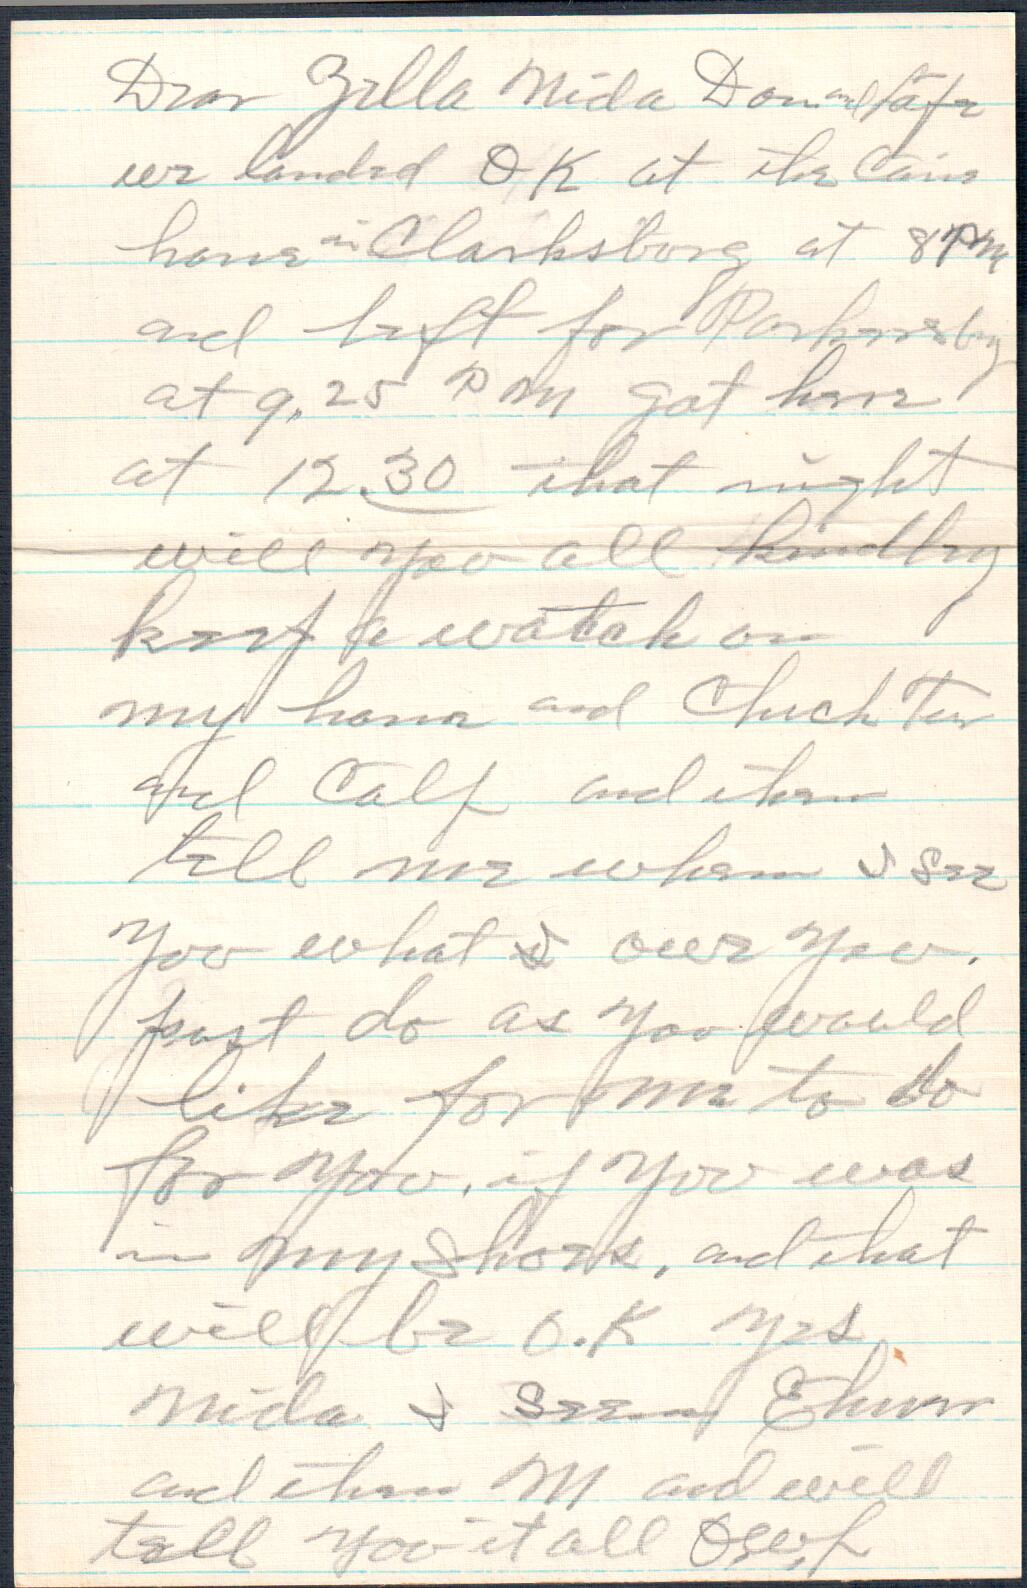 Dear Zella Nida Don and
we landed OK at the Cain
home in Clarksburg at 8 PM
and left for Parkersburg
at 9.25 PM got here
at 12.30 that night
will you all kindly
keep a watch on
my home and Chick
and Calf and then
tell me when I see
you what I owe you.
just do as you would
like for me to do
for you. if you was
in my shoes, and that
will be O.K yes
Nida I seen
and then M and will
tell you it all